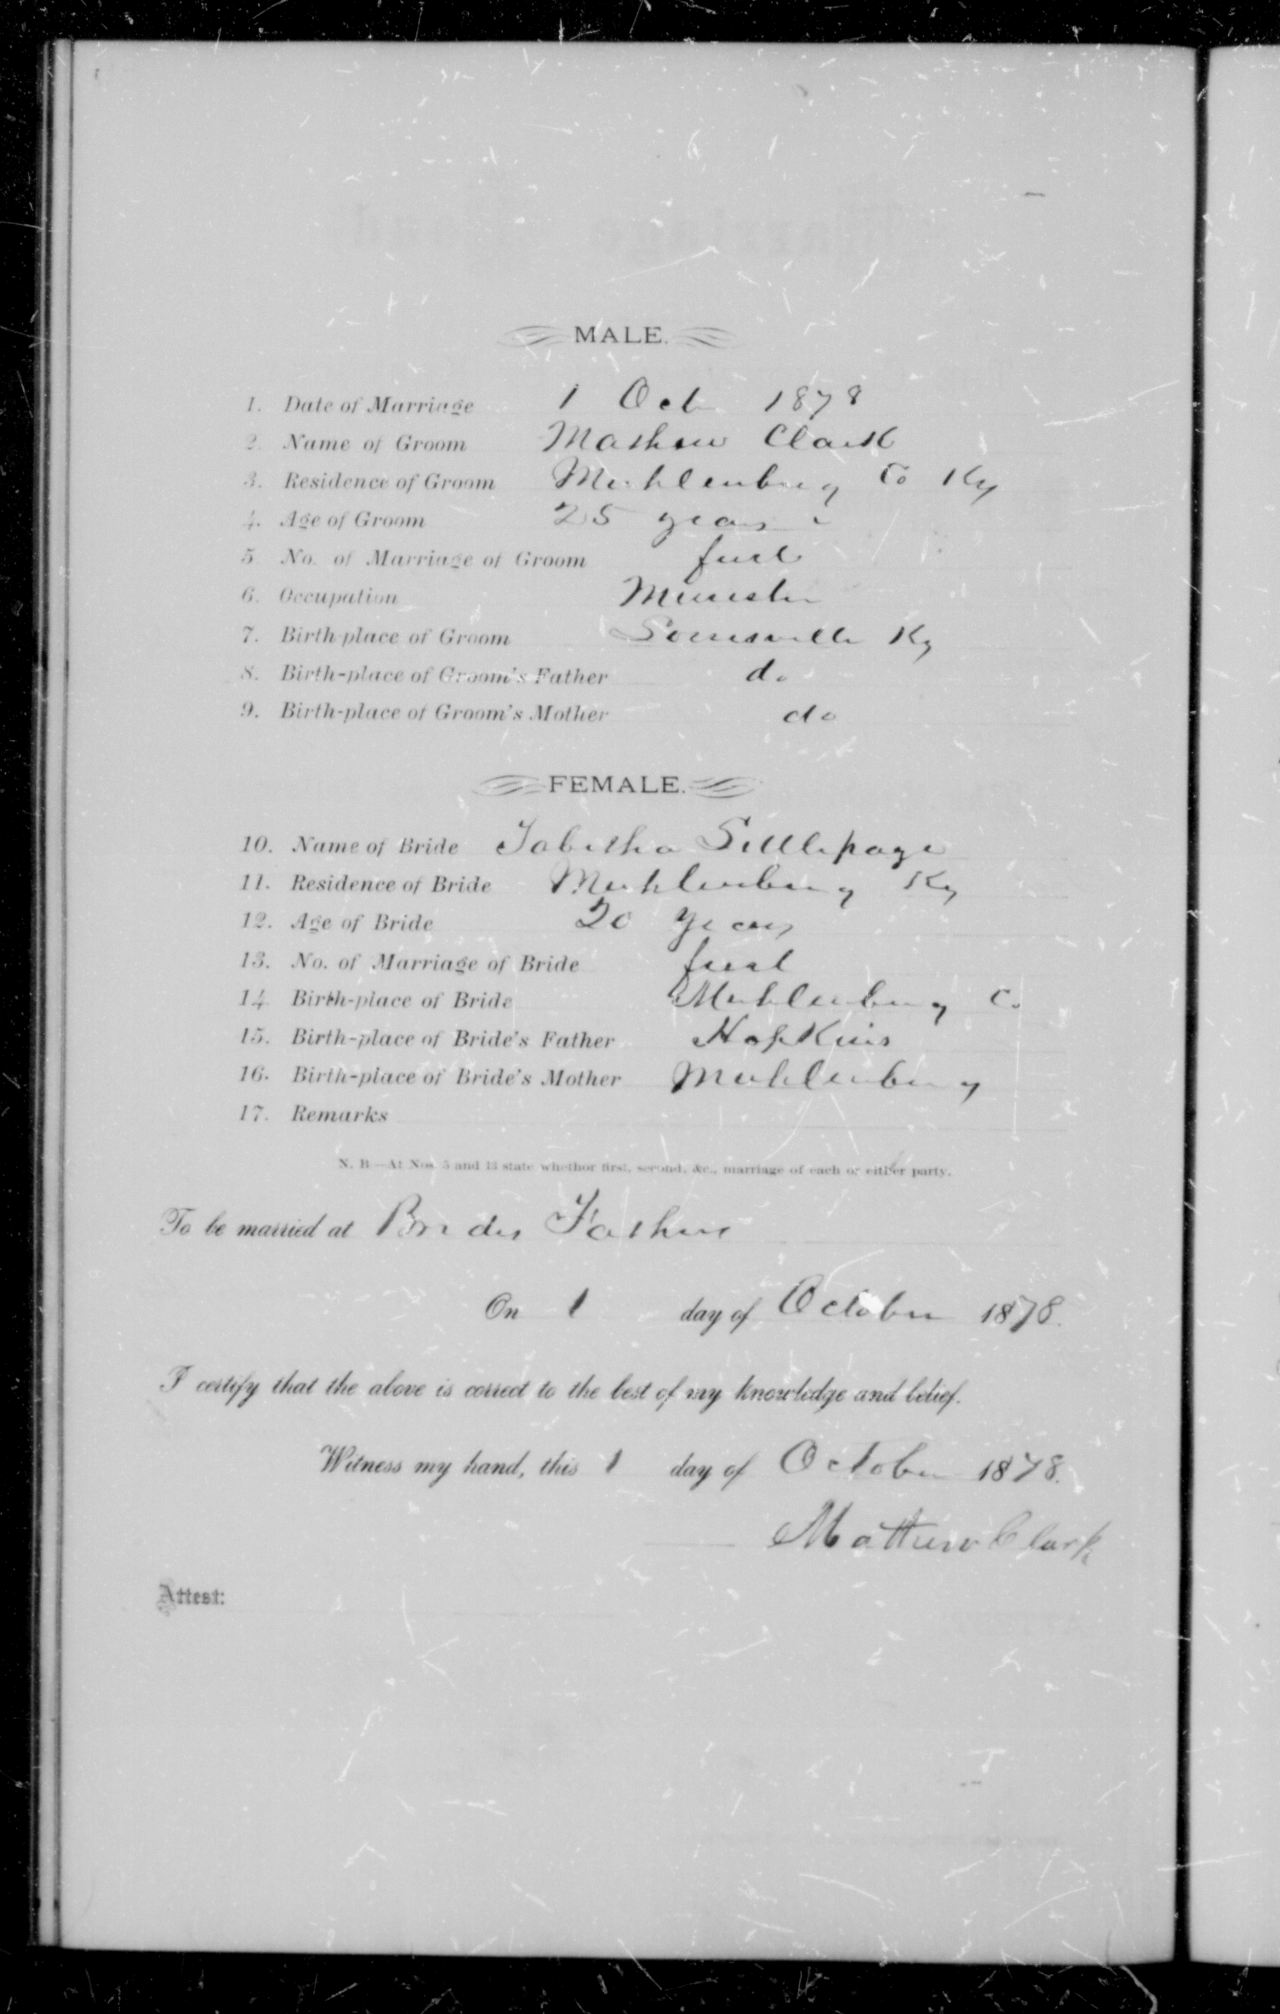 MALE.
1. Date of Marriage 1 Oct 1878
2. Name of Groom Mathew Clark
3. Residence of Groom Muhlenburg Co Ky
4. Age of Groom 25 years
5 No. of Marriage of Groom first
6. Occupation Minister
7. Birth-place of Groom Ky
8. Birth-place of Groom's Father do
9. Birth-place of Groom's Mother do
FEMALE.
10. Name of Bride Tabitha Littlepage
11. Residence of Bride Muhlenburg Ky
12. Age of Bride 20 years
13. No. of Marriage of Bride first
14 Birth-place of Bride Muhlenburg C.
15. Birth-place of Bride's Father Hopkins
16. Birth-place of Bride's Mother Muhlenburg
17. Remarks
N. B—At Nos. 5 and 13 state whether first, second, &c., marriage of each or either party.
To be married at Brides Fathers
On 1 day of October 1878.
I certify that the above is correct to the best of my knowledge and belief.
Witness my hand, this 1 day of October 1878.
Mathew Clark
Attest: